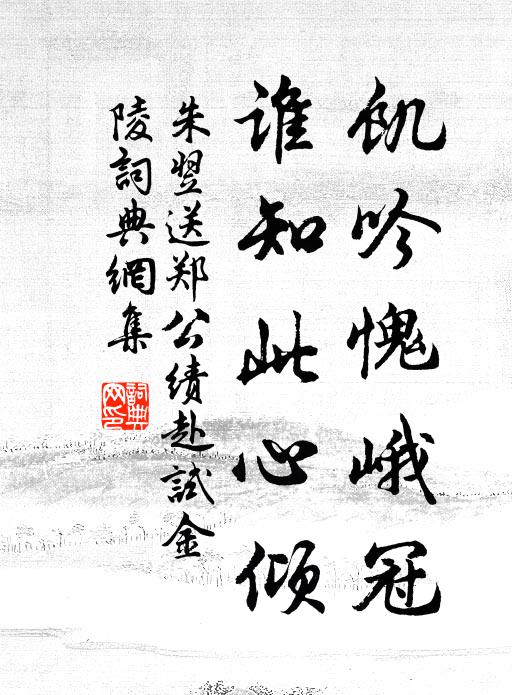 飢吟愧峨冠
谁知此心倾
朱翌送郑公绩赴試金
陵詞典網集
詞典
网印